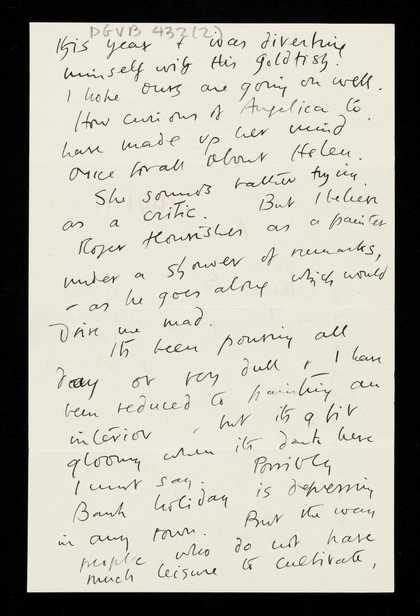 DGVB 437(2)
this year & was diverting
himself with his goldfish.
I hope ours are going on well.
How curious of Angelica to
have made up her mind
once for all about Helen.
She sounds rather trying
as a critic. But I believe
Roger flourishes as a painter
under a shower of remarks,
- as he goes along which would
Drive me mad.
Its been pouring all
day or very dull & I have
been reduced to painting an
interior - but its a bit
gloomy when its dark here
I must say. Possibly
Bank holiday is depressing
in any town. But the way
people who do not have
much leisure to cultivate,